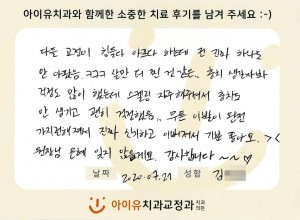 아이유치과와 함께한 소중한 치료 후기를 남겨 주세요 :-)
다들 교정이 힘들다 아프다 하는데 전 진짜 하나도
안 아팠음 ㅋㅋㅋ 살만 더 찐 것 같은.. 충치 생각하며
걱정도 많이 했는데 스켈링 자주해주셔서 충치도
안 생기고 괜히 걱정했음,, 무튼 이쁘이 되면
가지런해져서 진짜 신기하고 이뻐져서 기분 좋아요. ><
원장님 은혜 잊지 않을게요. 감사합니다 ~~ ♡
날짜 2020.07.21 성함 김
아이유치과교정과 치과의원